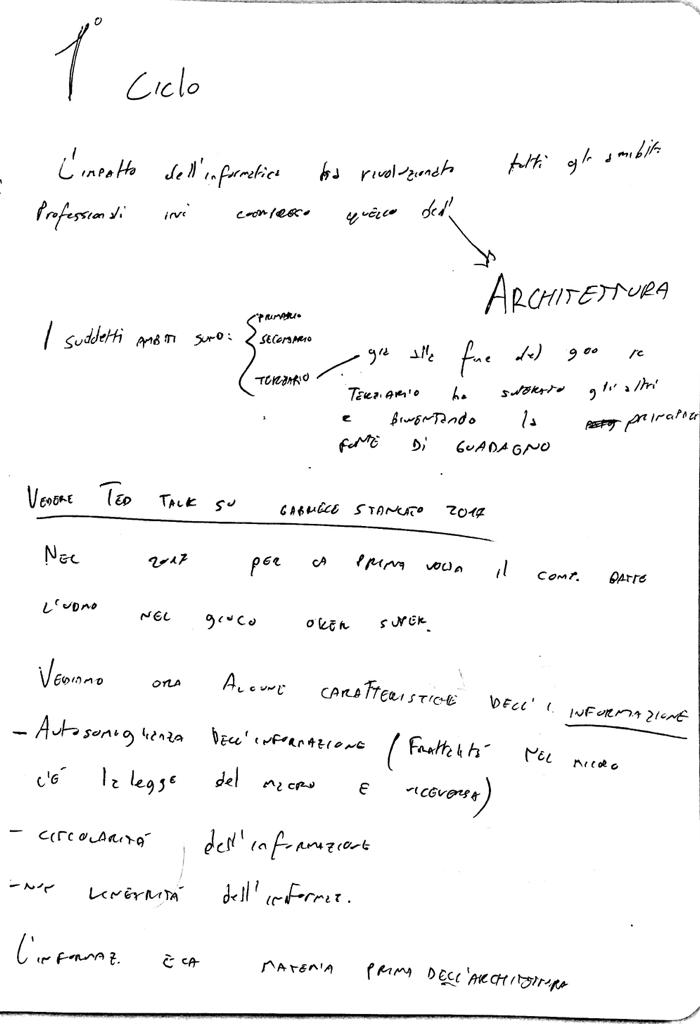 1°
Ciclo
L'impatto dell'informatica ha rivoluzionato tutti gli ambiti
Professionali ivi compreso quello dell'
ARCHITETTURA
I suddetti AMBITI SONO:
PRIMARIO
SECONDARIO
TERZIARIO
già alla fine del 900 il
TERZIARIO ha SUPERATO gli altri
e DIVENTANDO la principale
FONTE DI GUADAGNO
VEDERE TED TALK SU GABRIELE STANCATO 2017
NEL 2017 PER LA PRIMA VOLTA IL COMP. BATTE
L'UOMO NEL GIOCO SUPER.
VEDIAMO ORA ALCUNE CARATTERISTICHE DELL' INFORMAZIONE
- Autosomiglianza DELL'INFORMAZIONE (Frattalità NEL MICRO
c'è la legge del macro E VICEVERSA)
- CIRCOLARITÀ dell'informazione
- NON LINEARITÀ dell'informaz.
L'INFORMAZ. È LA MATERIA PRIMA DELL'ARCHITETTURA